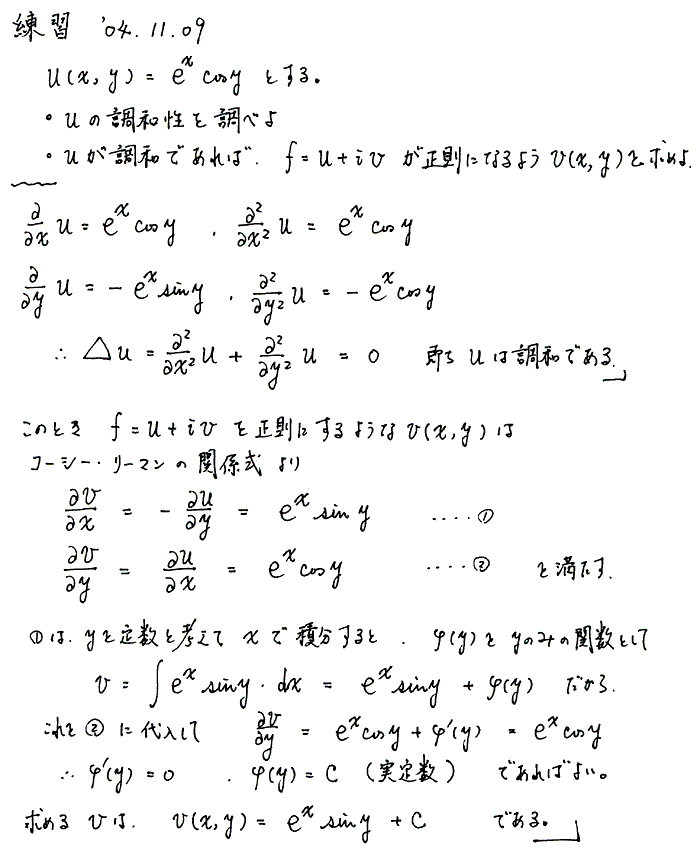 練習 '04.11.09
u(x, y) = e^x cos y とする。
・uの調和性を調べよ
・uが調和であれば、f = u + iv が正則になるよう v(x, y)を求めよ.
∂/∂x u = e^x cos y , ∂²/∂x² u = e^x cos y
∂/∂y u = - e^x sin y , ∂²/∂y² u = - e^x cos y
∴ △u = ∂²/∂x² u + ∂²/∂y² u = 0 即ち u は調和である.」
このとき f = u + iv を正則にするような v(x, y) は
コーシー・リーマンの関係式より
∂v/∂x = - ∂u/∂y = e^x sin y ‥‥①
∂v/∂y = ∂u/∂x = e^x cos y ‥‥② を満たす.
①は、yを定数と考えて xで積分すると、φ(y)を yのみの関数として
v = ∫ e^x sin y・dx = e^x sin y + φ(y) だから.
これを②に代入して ∂v/∂y = e^x cos y + φ'(y) = e^x cos y
∴ φ'(y) = 0 , φ(y) = C (実定数) であればよい。
求める v は. v(x, y) = e^x sin y + C である。」